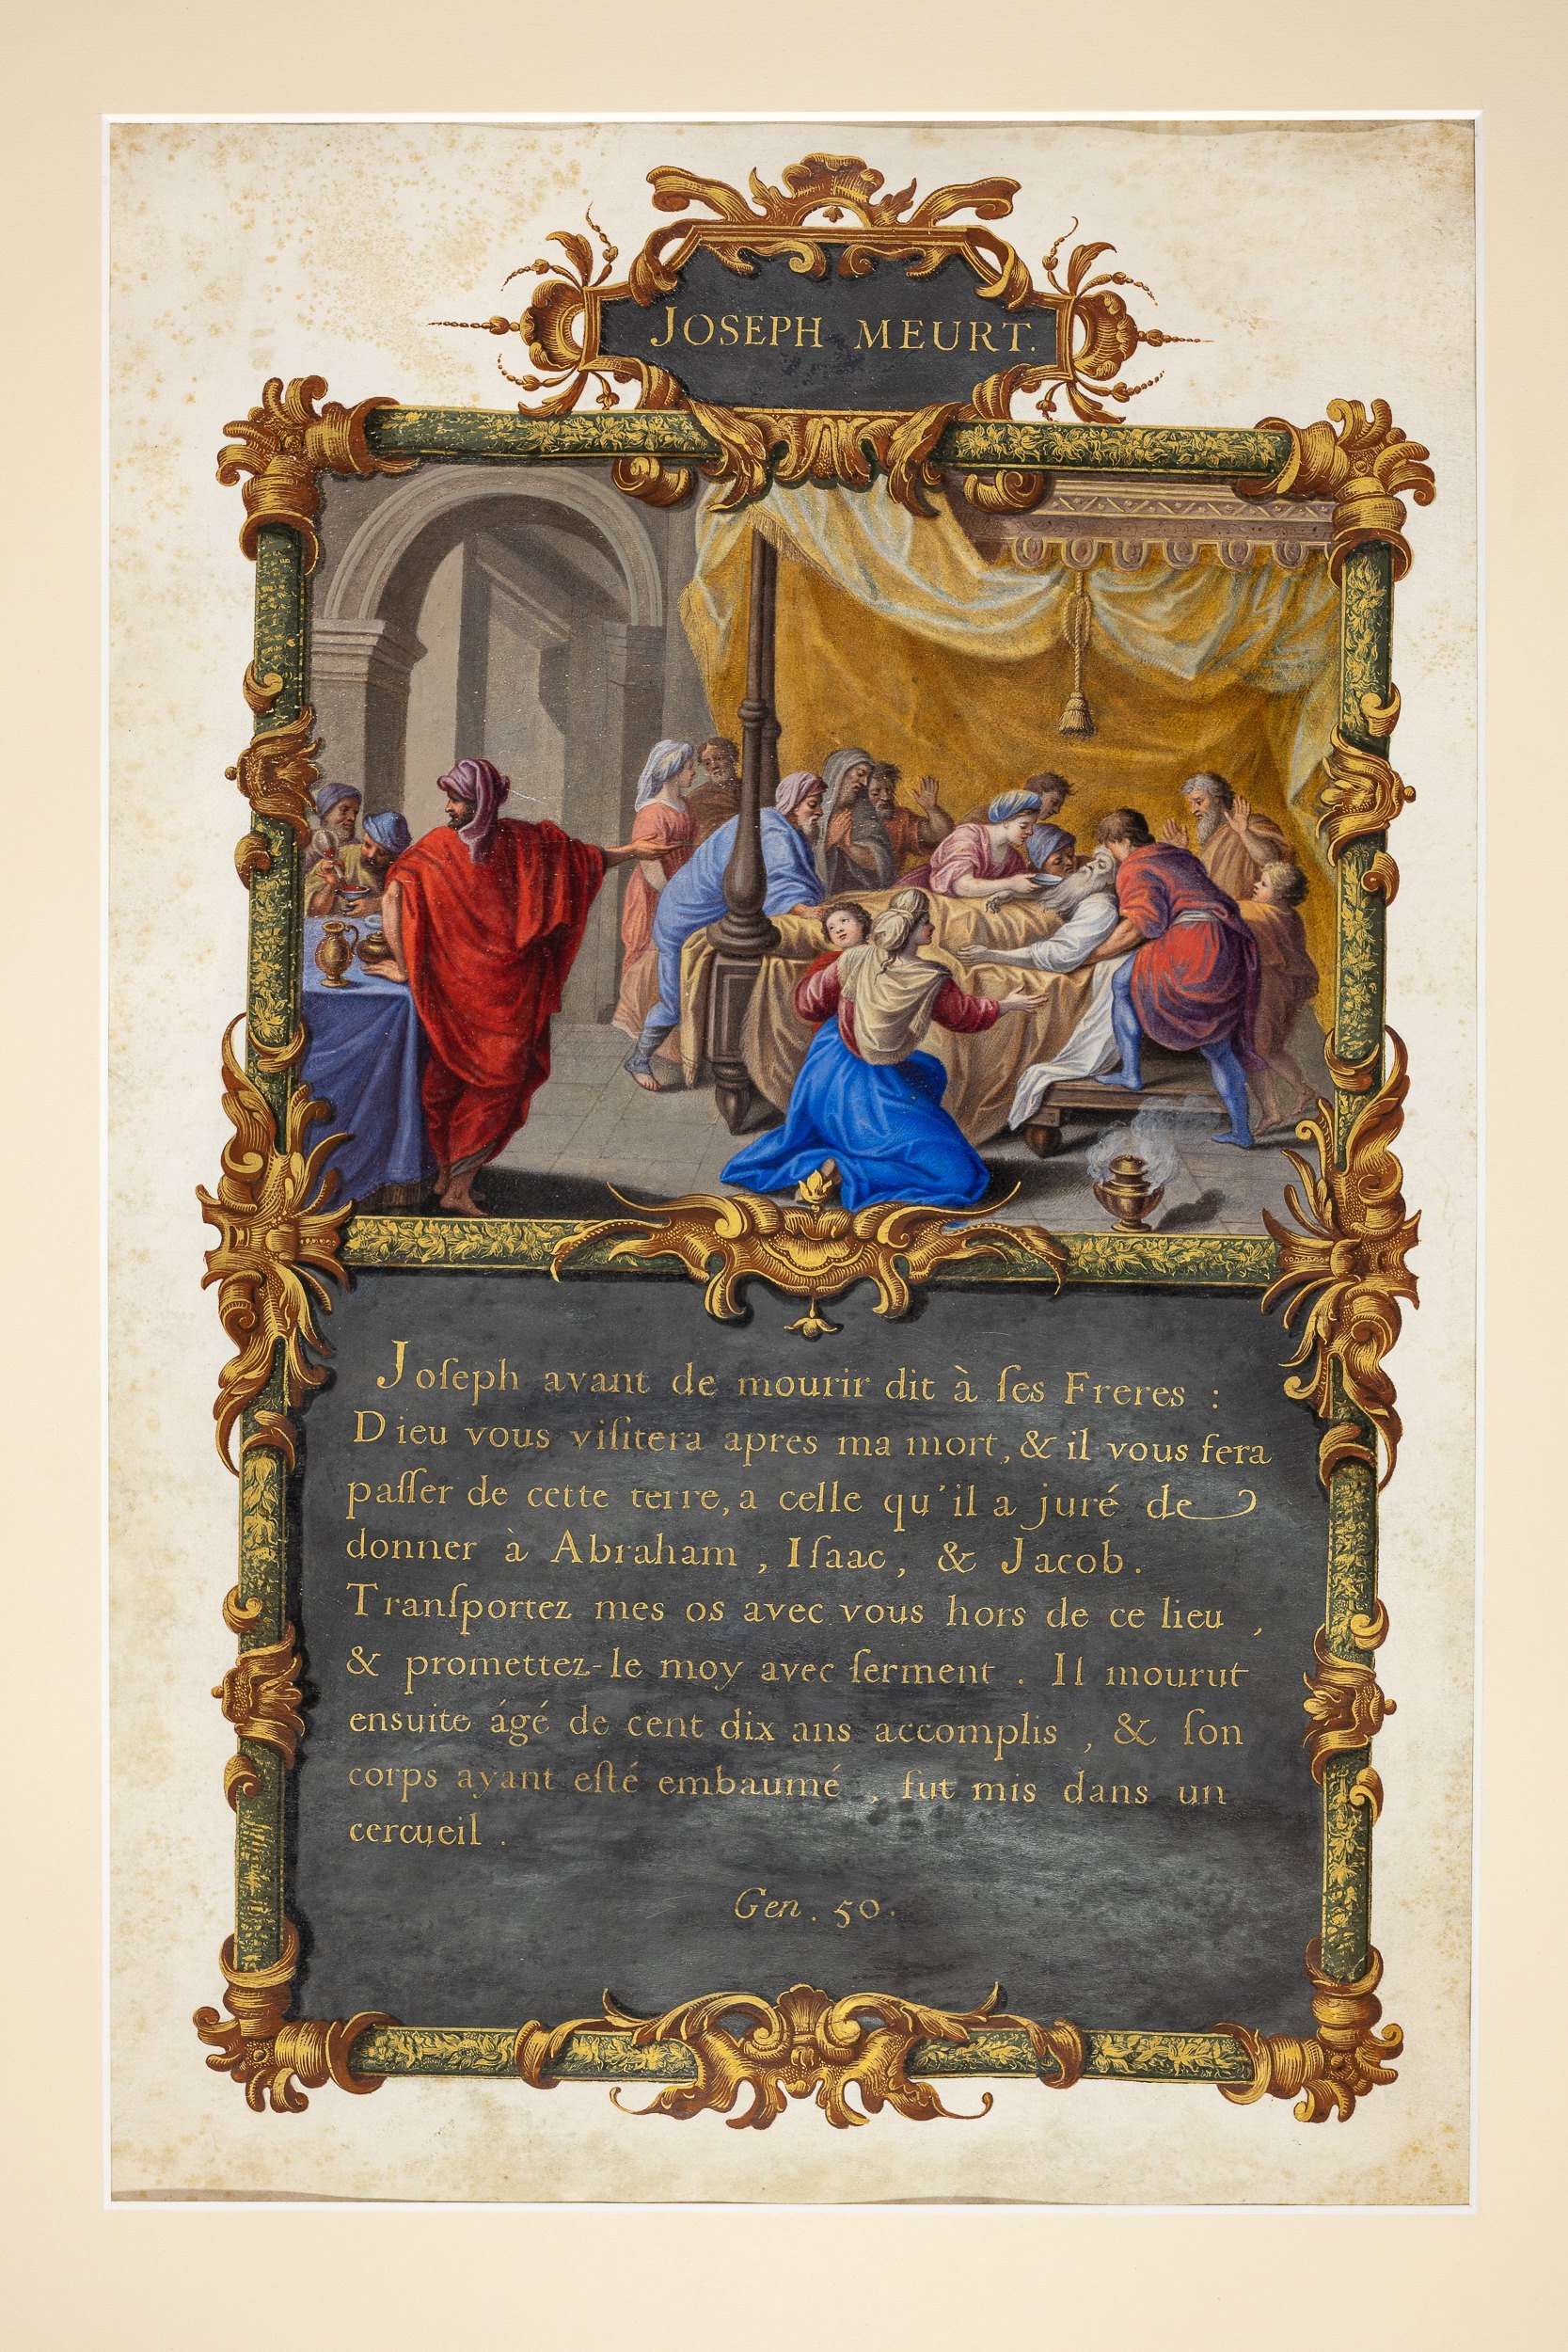 JOSEPH MEURT.
Joſeph avant de mourir dit à ſes Freres :
Dieu vous viſitera apres ma mort, & il vous fera
paſſer de cette terre, a celle qu'il a juré de
donner à Abraham , Iſaac , & Jacob .
Tranſportez mes os avec vous hors de ce lieu ,
& promettez-le moy avec ſerment . Il mourut
ensuite ágé de cent dix ans accomplis , & ſon
corps ayant eſté embaumé , fut mis dans un
cercueil .
Gen . 50 .